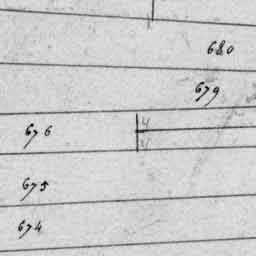 680
679
676
675
674